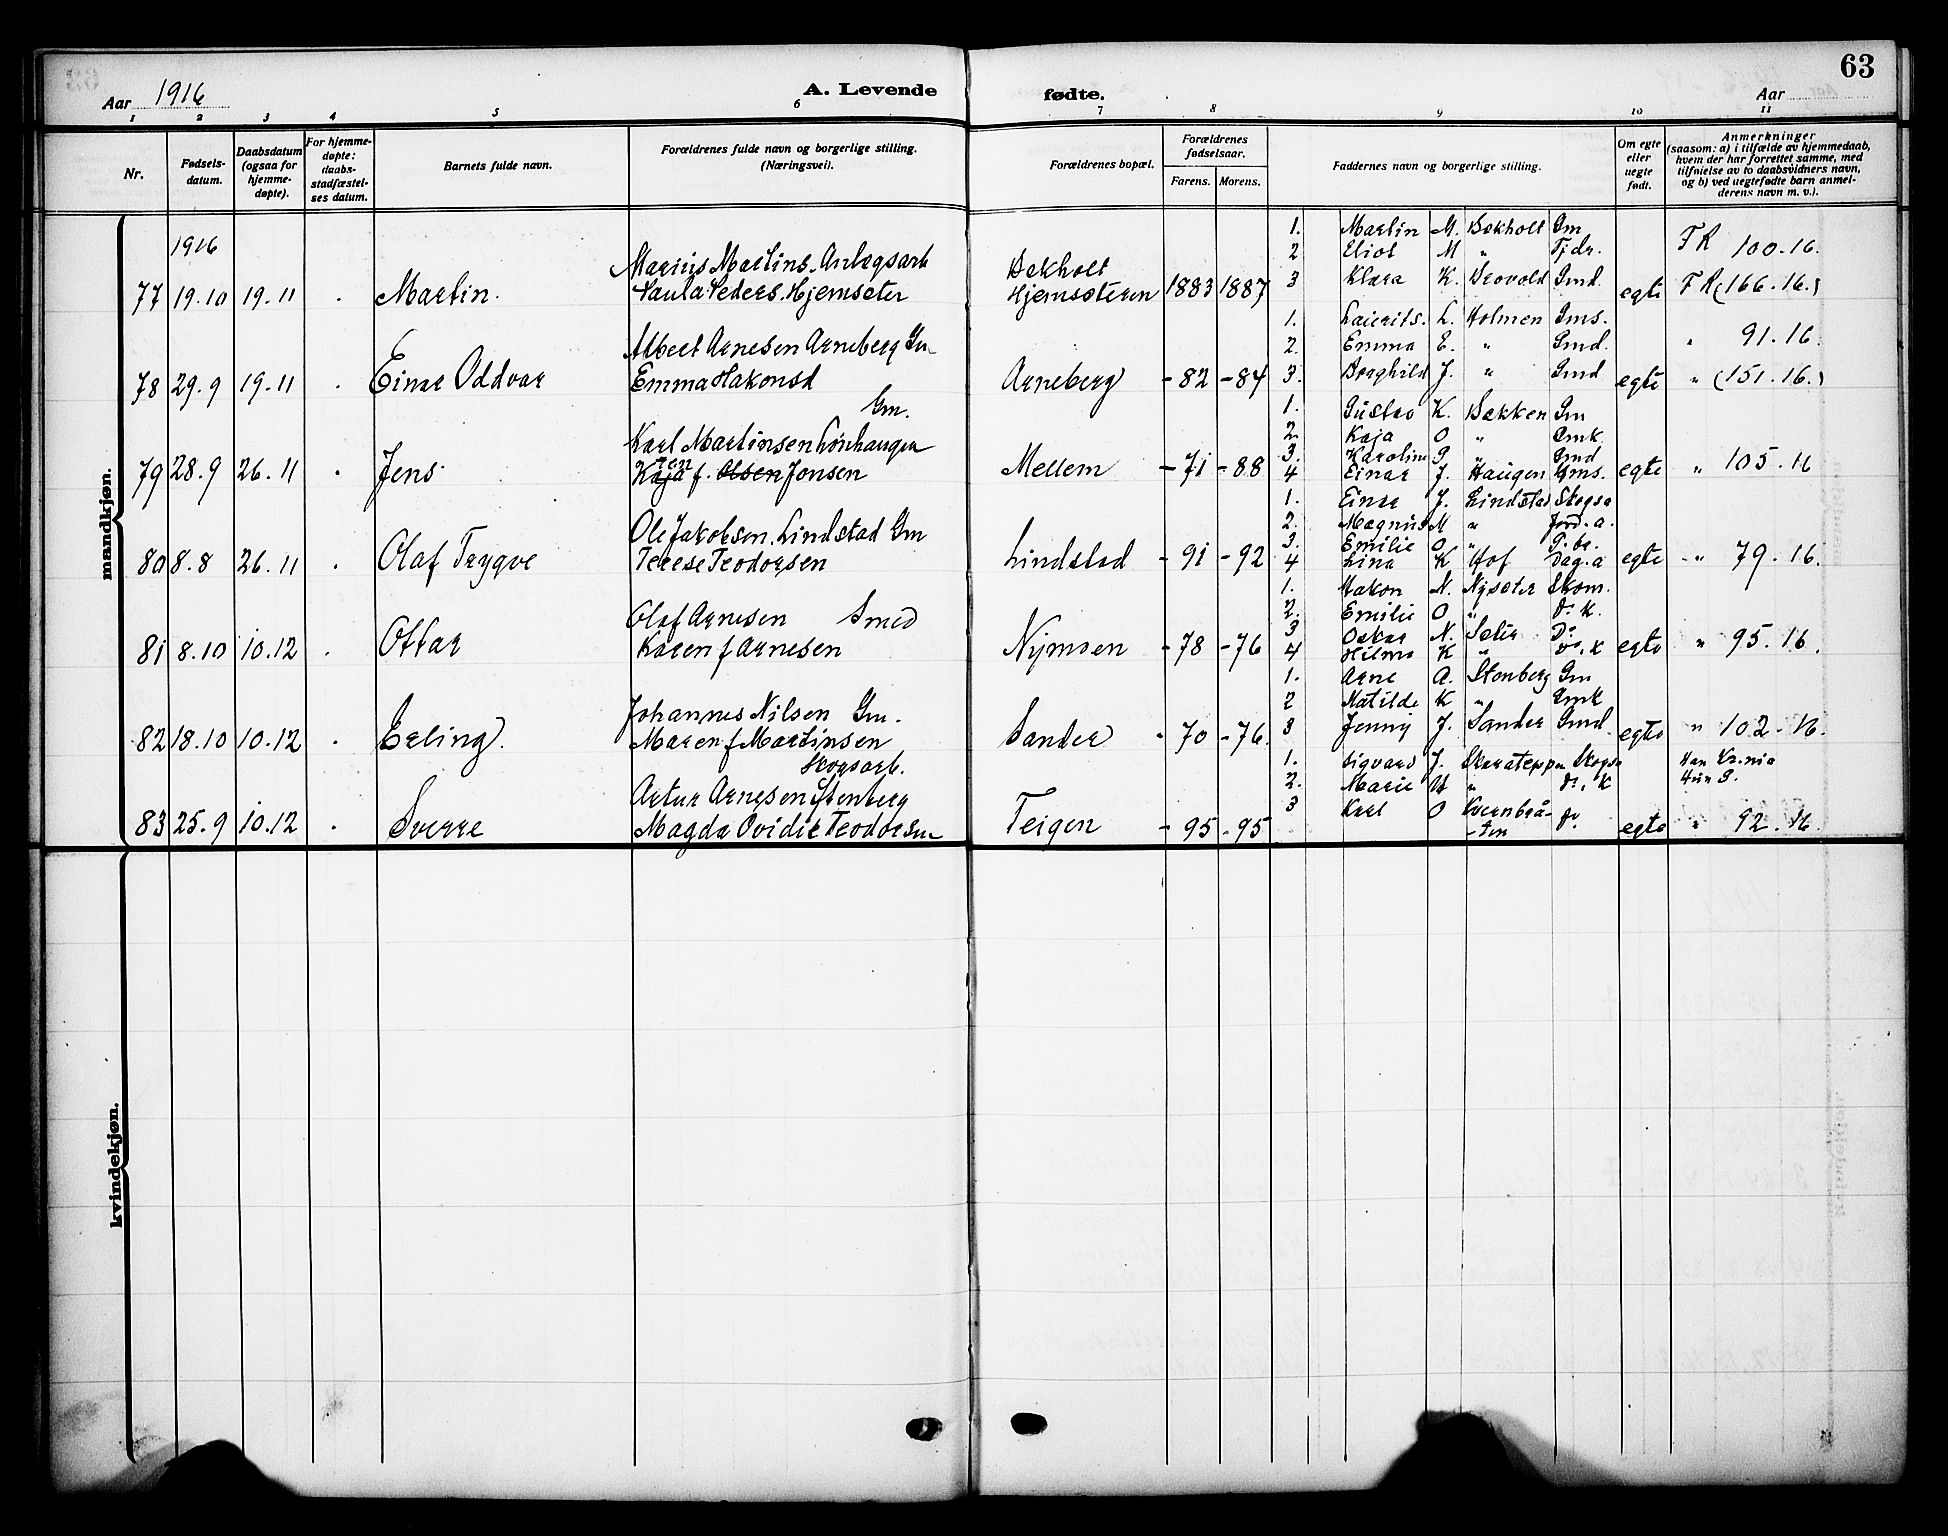 63
Aar 1916 A. Levende fødte. Aar
1 2 3 4 5 6 7 8 9 10 11
Nr.
Fødsels-
datum.
Daabsdatum
(ogsaa for
hjemme-
døpte).
For hjemme-
døpte:
daabs-
stadfæstel-
ses datum.
Barnets fulde navn.
Forældrenes fulde navn og borgerlige stilling.
(Næringsvei).
Forældrenes bopæl.
Forældrenes
fødselsaar.
Farens. Morens.
Faddernes navn og borgerlige stilling.
Om egte
eller
uegte
født.
Anmerkninger
(saasom: a) i tilfælde av hjemmedaab,
hvem der har forrettet samme, med
tilføielse av to daabsvidners navn,
og b) ved uegtefødte barn anmel-
derens navn m. v.).
mandkjøn.
1916
77 19.10 19.11 Martin.
Marius Martins. Anlægsarb
Paula Peders. Hjemseter
Bækholt
Hjemsæteren 1883 1887
1. Martin M. Bækholt Gm
2 Eliot M " Tjdr.
3 Klara K. Brovold Gmd.
egte
FR 100.16.
FR (166.16.)
78 29.9 19.11 Einar Oddvar
Albert Arnesen Arneberg Gm
Emma Hakonsd
Arneberg - 82 - 84
1. Lauritz. L. Holmen Gms.
2. Emma E. " Gmd.
3. Borghild J. " Gmd
egte
" 91.16.
" (151.16.)
79 28.9 26.11 Jens
Gm.
Karl Martinsen Lønhaugen
ren
Kaja f. Olsen Jonsen
Mellem - 71 - 88
1. Gustav K. Bækken Gm
2. Kaja O " Gmk
3. Karoline G " Gmd
4 Einar J. Haugen Gms.
egte
" 105.16
80 8.8 26.11 Olaf Trygve
Ole Jakobsen. Lindstad Gm
Terese Teodorsen
Lindstad - 91 - 92
1. Einar J. Lindstad Skogsa
2. Magnus M " Jord.a.
3. Emilie O " P. br.
4 Lina K Hof Dag.a
egte
" 79.16.
81 8.10 10.12 Ottar
Olaf Arnesen Smed
Karen f Arnesen
Nymoen - 78 - 76
1. Hakon N. Nyseter Skom.
2. Emilie O " do K.
3 Oskar N. Sæter Do
4 Hilma K " do. K
egte
" 95.16.
82 18.10 10.12 Erling.
Johannes Nilsen Gm.
Maren f Martinsen
Sander - 70 - 76.
1. Arne A. Stenberg Gm
2 Matilde K " Gmk
3 Jenny J. Sander Gmd.
egte
" 102.16.
83 25.9 10.12 Sverre
Skogsarb.
Artur Arnesen Stenberg
Magda Ovidie Teodorsen
Teigen - 95 - 95
1. Sigvard J. Skarateppen Skogsa
2. Marie " do. K
3 Karl O Kvernbrå-
-ten do.
egte
Han Kr.nia
Hun G.
" 92.16.
kvindekjøn.